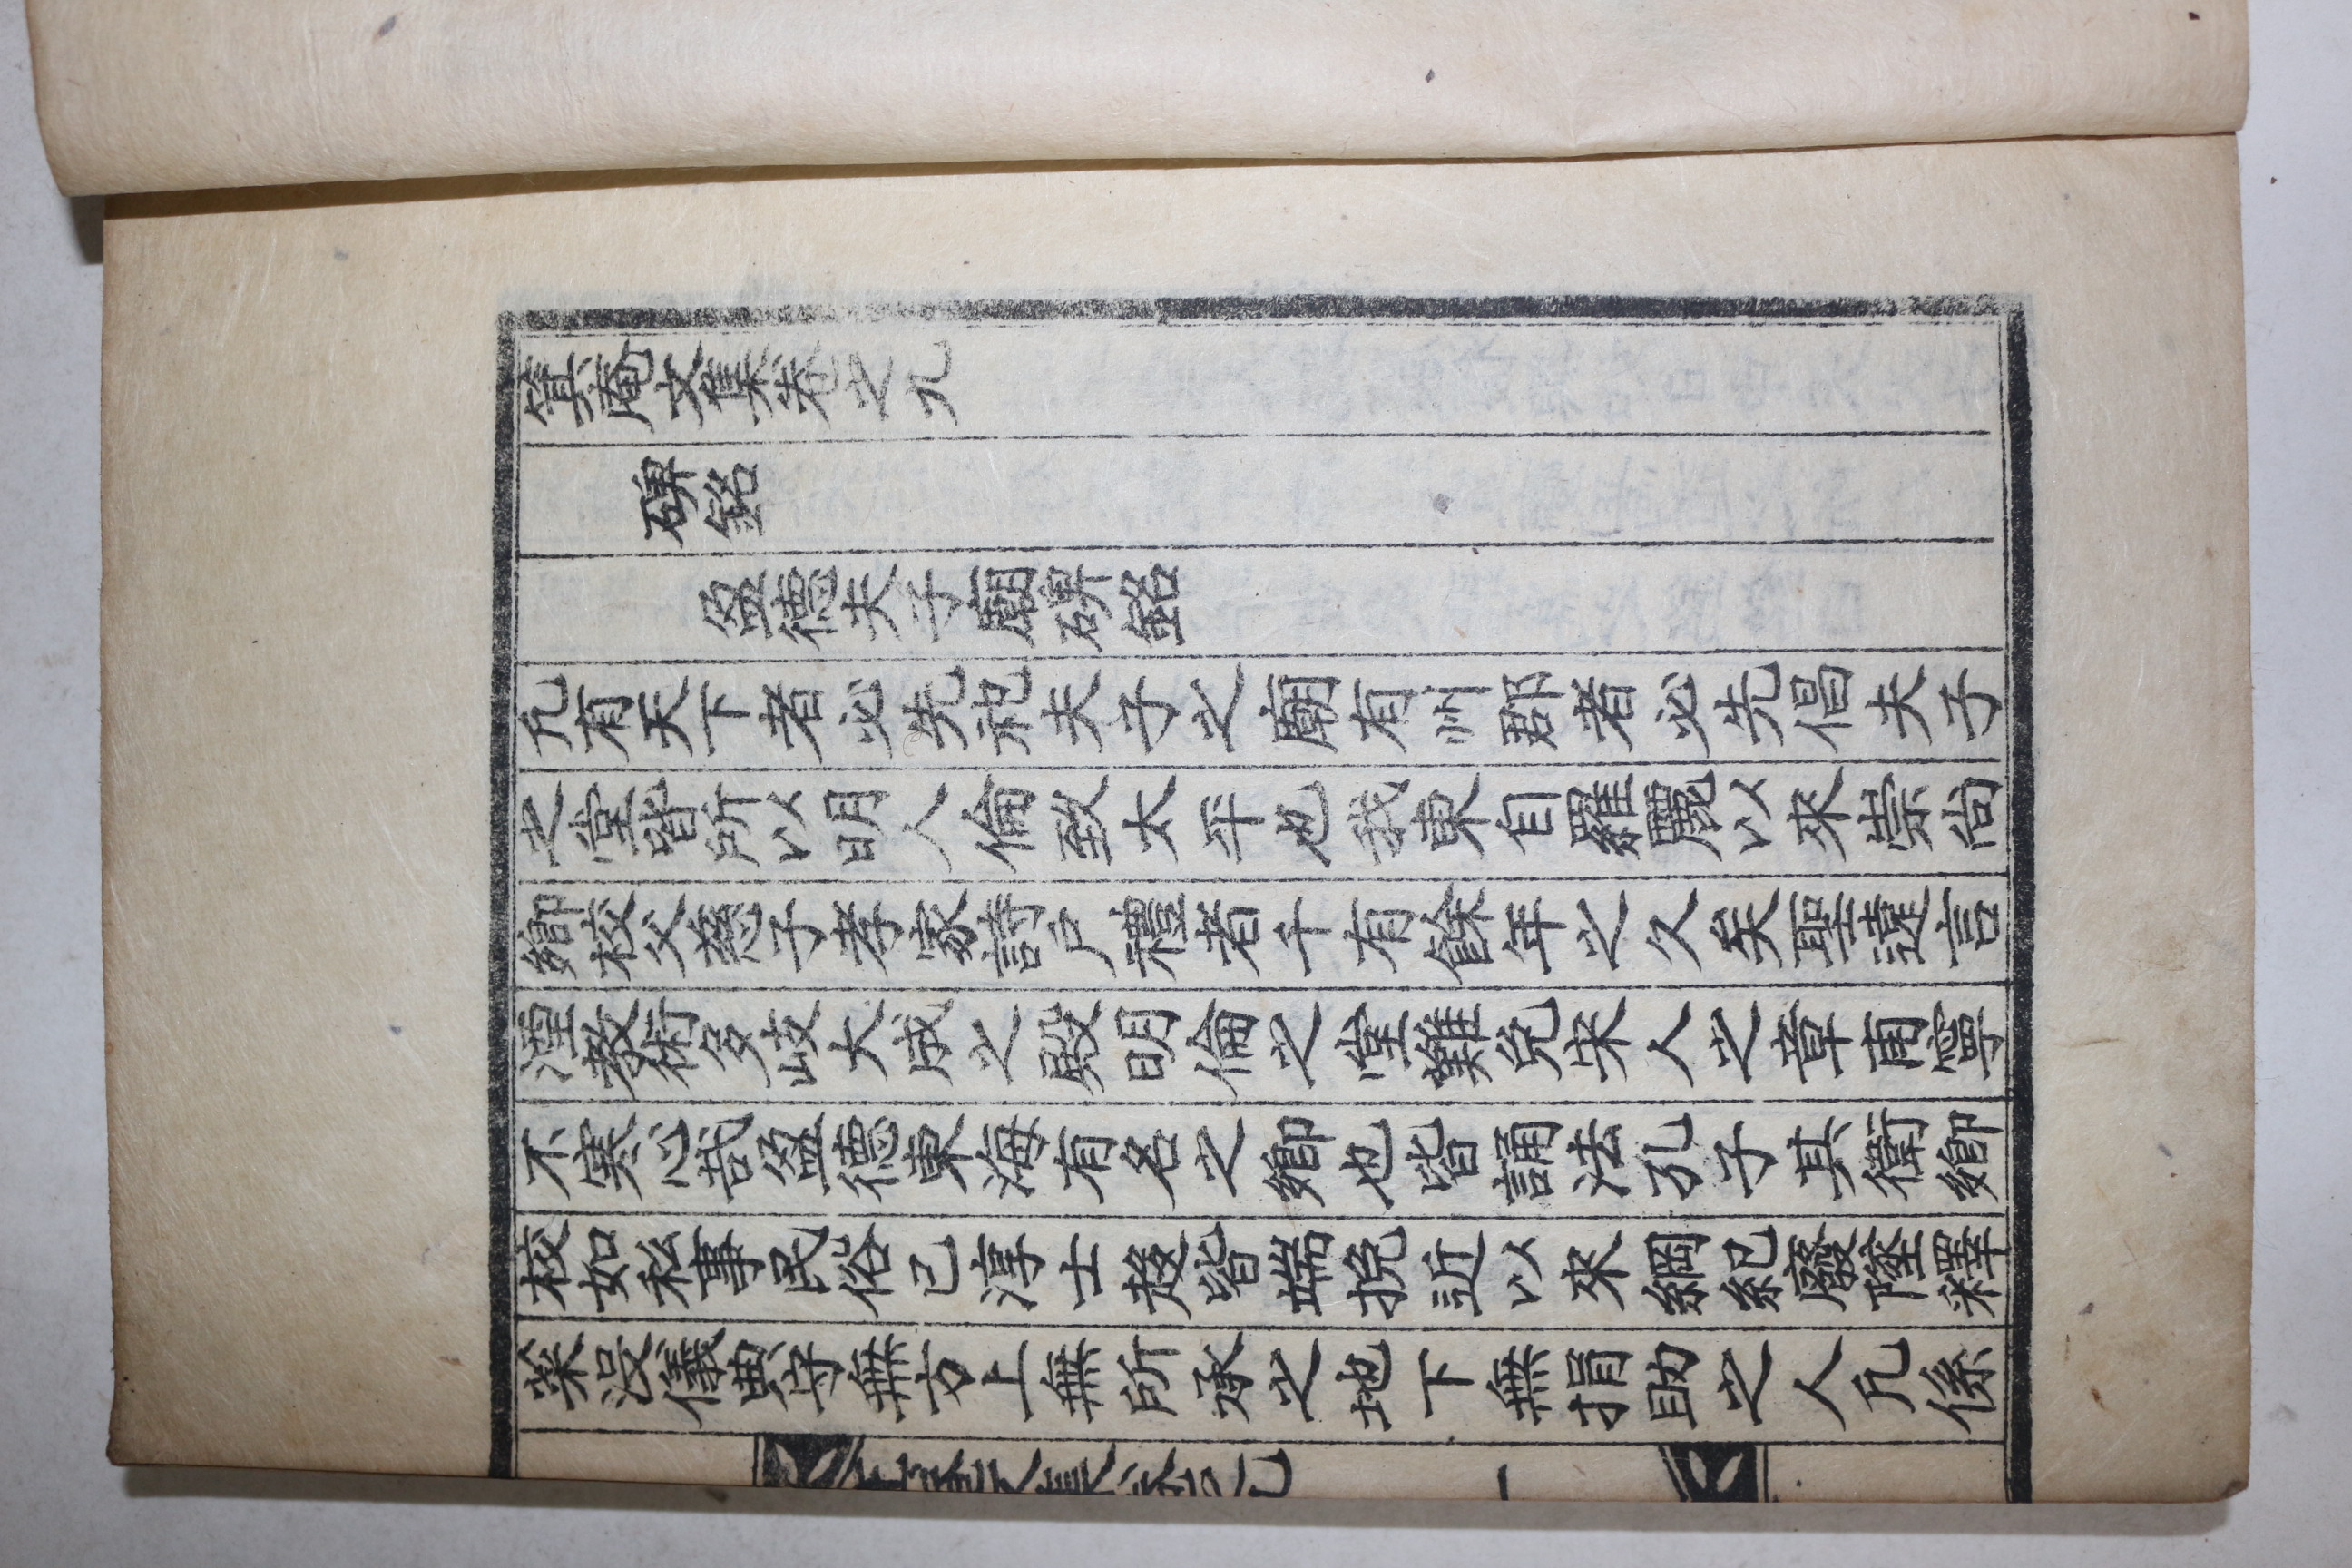 箕庵文集卷之九
碑銘
盈德夫子廟碑銘
凡有天下者必先祀夫子之廟有州郡者必先倡夫子
之堂皆所以明人倫致太平也我東自羅麗以來崇尚
鄉校父慈子孝家詩戶禮者千有餘年之久矣聖遠言
湮教術多歧大成之殿明倫之堂難免宋人之章甫寧
不寒心哉盈德東海有名之鄉也皆誦法孔子其衛鄉
校如私事民俗已淳士趍皆端挽近以來綱紀廢墜釋
菜沒儀典守無方上無所承之地下無捐助之人凡係